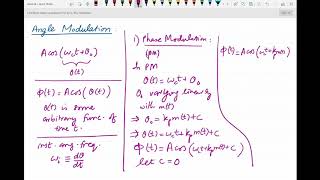 Angle Modulation
A cos(ω₀t + θ₀)
θ(t)
φ(t) = A cos(θ(t))
θ(t) is some
arbitrary func. of
time t.
inst. ang. freq.
ωᵢ ≡ dθ/dt
i) Phase Modulation:
(PM)
In PM
θ(t) = ω₀t + θ₀
θ₀ varying linearly
with m(t)
⇒ θ₀ = kₚm(t) + C
⇒ θ(t) = ω₀t + kₚm(t) + C
φ(t) = A cos(ω₀t + kₚm(t) + C)
let C = 0
φ(t) = A cos(ω₀t + kₚm(t))